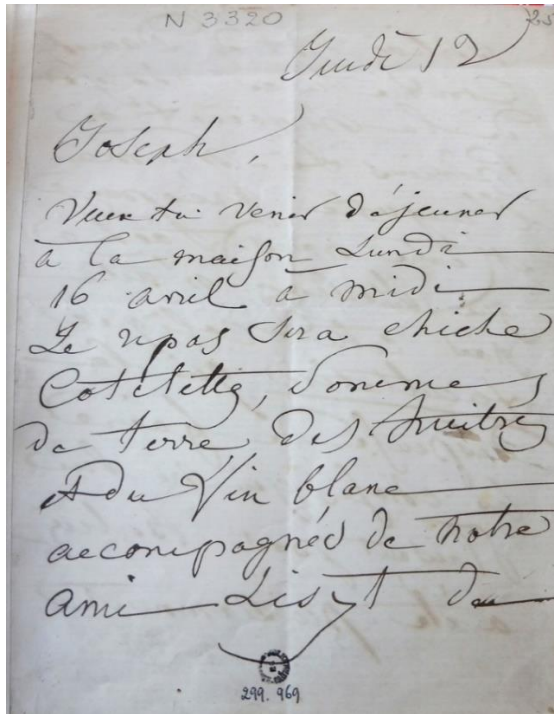 N 3320
Jeudi 12
Joseph,
Veux tu venir déjeuner
à la maison Lundi
16 avril à midi
Le repas sera chiche
Cotelette, pommes
de terre des huitres
et du Vin blanc
accompagnés de notre
ami Liszt de
299. 969